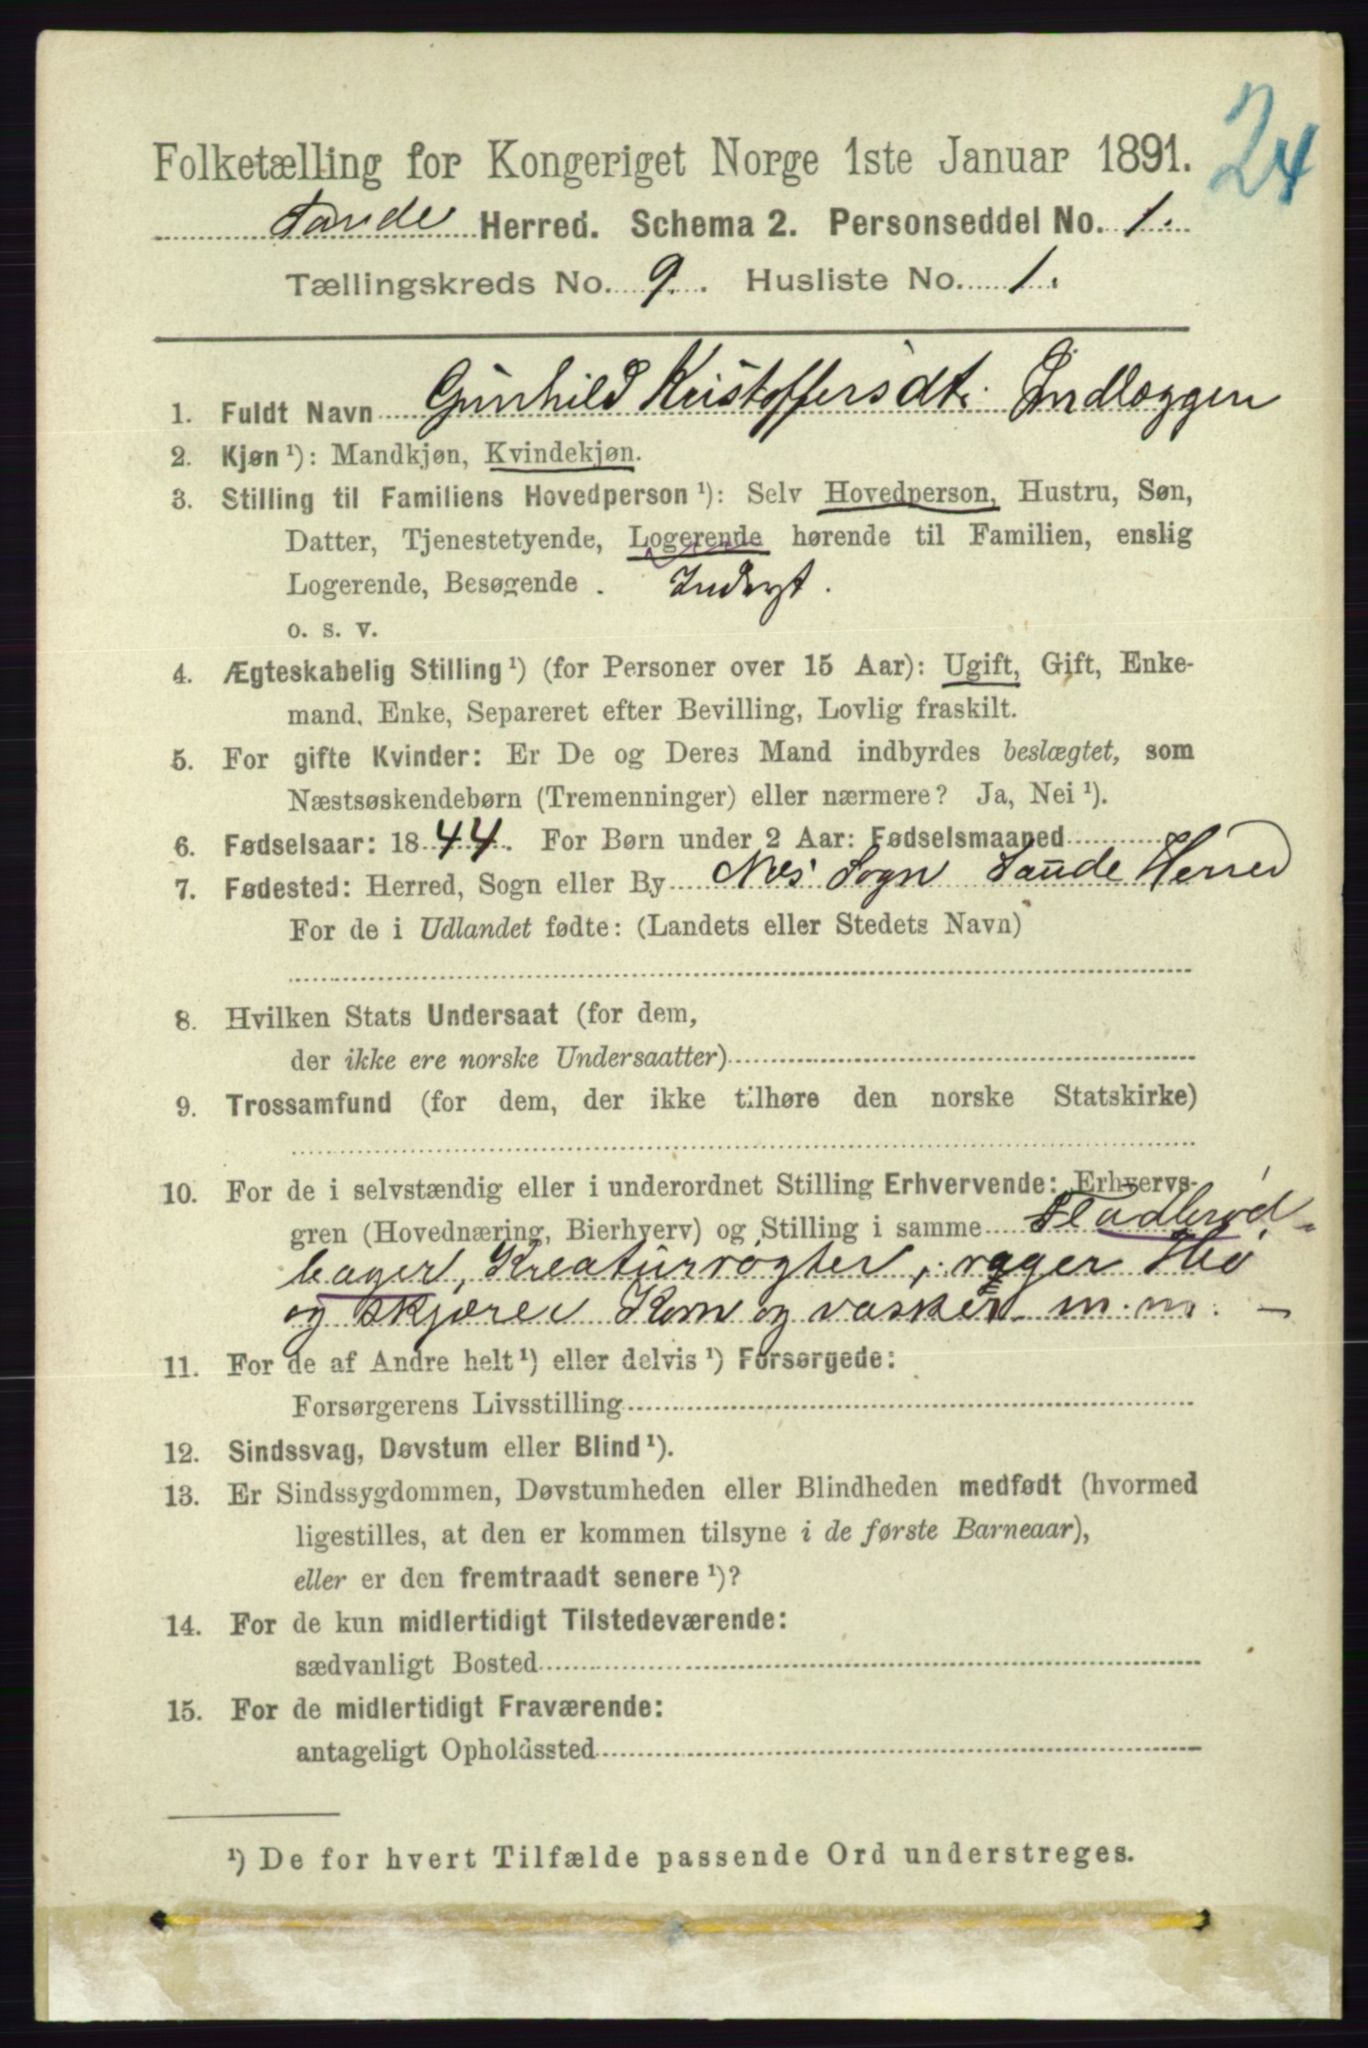 24
Folketælling for Kongeriget Norge 1ste Januar 1891.
Saude Herred. Schema 2. Personseddel No. 1.
Tællingskreds No. 9. Husliste No. 1.
1. Fuldt Navn Gunhild Kristoffersdt. Indlæggen
2. Kjøn ¹): Mandkjøn, Kvindekjøn.
3. Stilling til Familiens Hovedperson ¹): Selv Hovedperson, Hustru, Søn,
Datter, Tjenestetyende, Logerende hørende til Familien, enslig
Logerende, Besøgende . Inderst.
o. s. v.
4. Ægteskabelig Stilling ¹) (for Personer over 15 Aar): Ugift, Gift, Enke-
mand, Enke, Separeret efter Bevilling, Lovlig fraskilt.
5. For gifte Kvinder: Er De og Deres Mand indbyrdes beslægtet, som
Næstsøskendebørn (Tremenninger) eller nærmere? Ja, Nei ¹).
6. Fødselsaar: 1844. For Børn under 2 Aar: Fødselsmaaned
7. Fødested: Herred, Sogn eller By Nes Sogn Saude Herred
For de i Udlandet fødte: (Landets eller Stedets Navn)
8. Hvilken Stats Undersaat (for dem,
der ikke ere norske Undersaatter)
9. Trossamfund (for dem, der ikke tilhøre den norske Statskirke)
10. For de i selvstændig eller i underordnet Stilling Erhvervende: Erhvervs-
gren (Hovednæring, Bierhverv) og Stilling i samme Fladbrød-
bager, Kreaturrøgter, rager Hø
og skjærer Korn og vasker m.m. —
11. For de af Andre helt ¹) eller delvis ¹) Forsørgede:
Forsørgerens Livsstilling
12. Sindssvag, Døvstum eller Blind ¹).
13. Er Sindssygdommen, Døvstumheden eller Blindheden medfødt (hvormed
ligestilles, at den er kommen tilsyne i de første Barneaar),
eller er den fremtraadt senere ¹)?
14. For de kun midlertidigt Tilstedeværende:
sædvanligt Bosted
15. For de midlertidigt Fraværende:
antageligt Opholdssted
¹) De for hvert Tilfælde passende Ord understreges.